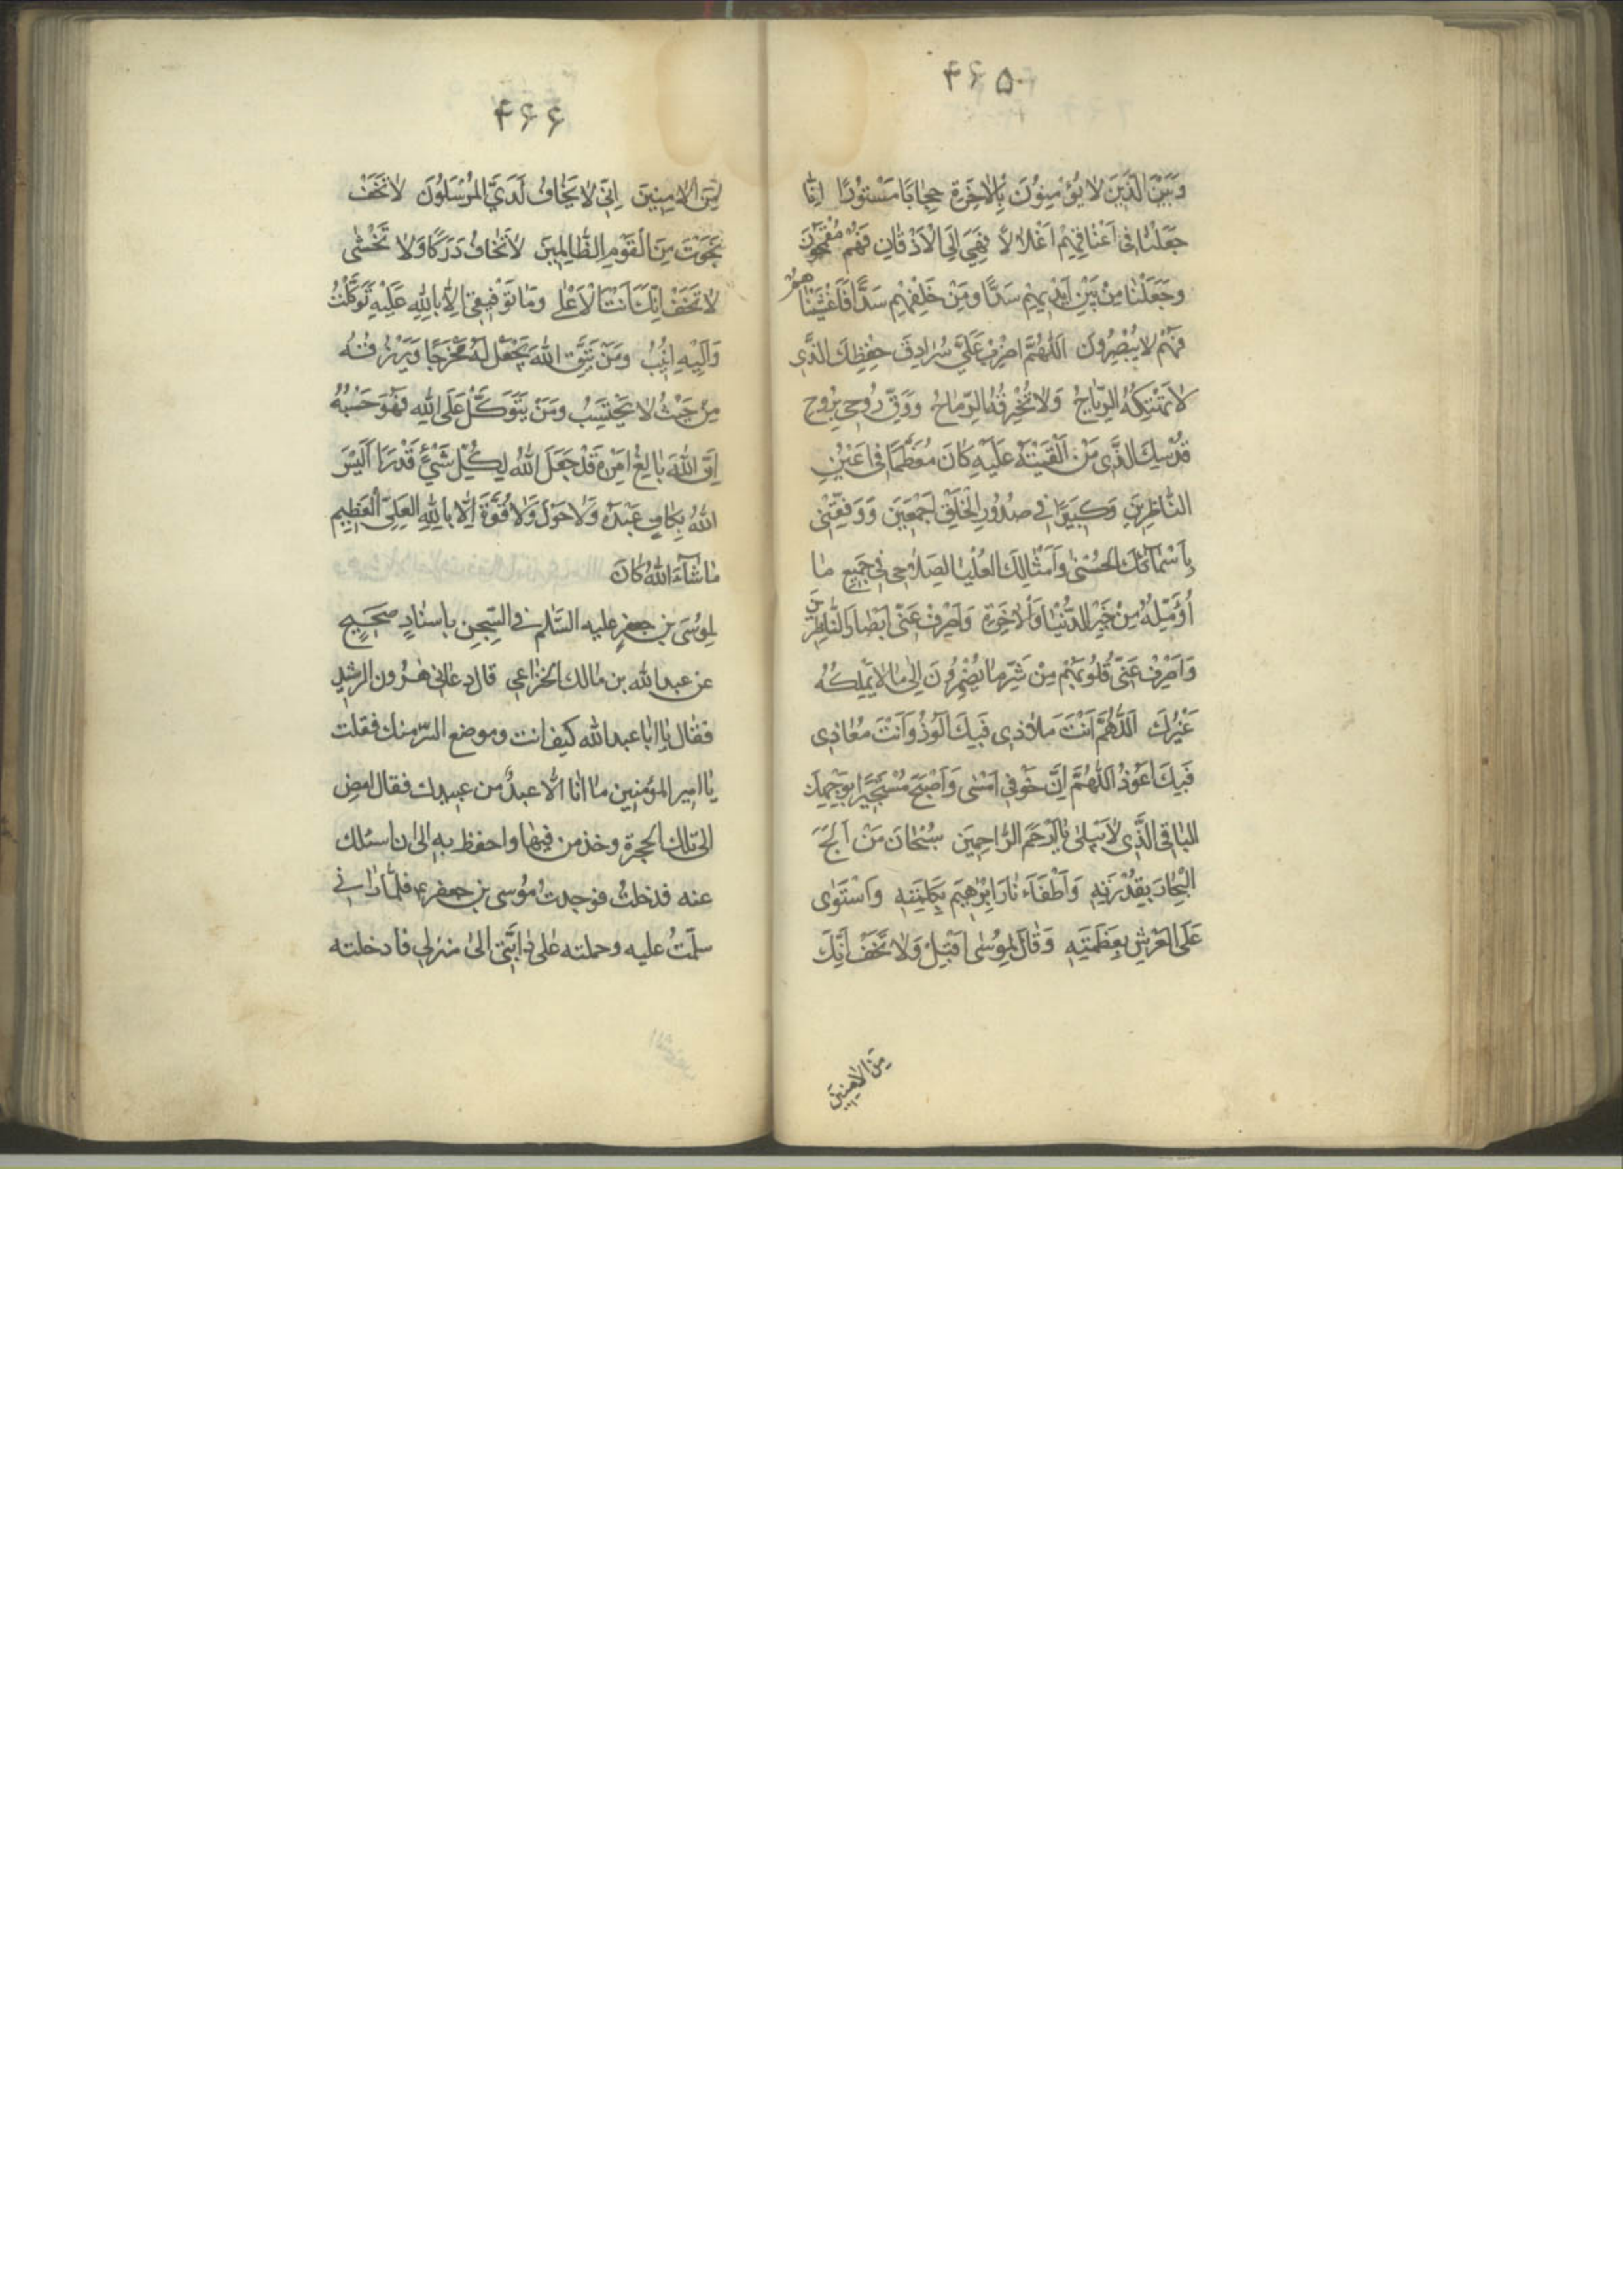 ۴۶۵
وَبَيْنَ الَّذِينَ لَا يُؤْمِنُونَ بِالْآخِرَةِ حِجَابًا مَسْتُورًا اِنَّا
جَعَلْنَا فِي اَعْنَاقِهِمْ اَغْلَالًا فَهِيَ اِلَى الْاَذْقَانِ فَهُمْ مُقْمَحُونَ
وَجَعَلْنَا مِنْ بَيْنِ اَيْدِيهِمْ سَدًّا وَمِنْ خَلْفِهِمْ سَدًّا فَاَغْشَيْنَاهُمْ
فَهُمْ لَا يُبْصِرُونَ اَللّٰهُمَّ اضْرِبْ عَلَيَّ سُرَادِقَ حِفْظِكَ الَّذِي
لَا تَهْتِكُهُ الرِّيَاحُ وَلَا تَخْرِقُهُ الرِّمَاحُ وَوَقِّ رُوحِي بِرُوحِ
قُدْسِكَ الَّذِي مَنْ اَلْقَيْتَهُ عَلَيْهِ كَانَ مُعَظَّمًا فِي اَعْيُنِ
النَّاظِرِينَ وَكَبِيرًا فِي صُدُورِ الْخَلْقِ اَجْمَعِينَ وَوَفِّقْنِي
بِاَسْمَائِكَ الْحُسْنٰى وَاَمْثَالِكَ الْعُلْيَا لِصَلَاحِي فِي جَمِيعِ مَا
اُؤَمِّلُهُ مِنْ خَيْرِ الدُّنْيَا وَالْآخِرَةِ وَاصْرِفْ عَنِّي اَبْصَارَ النَّاظِرِينَ
وَاصْرِفْ عَنِّي قُلُوبَهُمْ مِنْ شَرِّ مَا يُضْمِرُونَ اِلٰى مَا لَا يَمْلِكُهُ
غَيْرُكَ اَللّٰهُمَّ اَنْتَ مَلَاذِي فَبِكَ اَلُوذُ وَاَنْتَ مَعَاذِي
فَبِكَ اَعُوذُ اَللّٰهُمَّ اِنَّ خَوْفِي اَمْسٰى وَاَصْبَحَ مُسْتَجِيرًا بِوَجْهِكَ
الْبَاقِي الَّذِي لَا يَبْلٰى يَا اَرْحَمَ الرَّاحِمِينَ سُبْحَانَ مَنْ اَلْجَ
الْبِحَارَ بِقُدْرَتِهِ وَاَطْفَاَ نَارَ اِبْرٰهِيمَ بِكَلِمَتِهِ وَاسْتَوٰى
عَلَى الْعَرْشِ بِعَظَمَتِهِ وَقَالَ لِمُوسٰى اَقْبِلْ وَلَا تَخَفْ اِنَّكَ
مِنَ الْآمِنِينَ
۴۶۶
مِنَ الْآمِنِينَ اِنِّي لَا يَخَافُ لَدَيَّ الْمُرْسَلُونَ لَا تَخَفْ
نَجَوْتَ مِنَ الْقَوْمِ الظَّالِمِينَ لَا تَخَافُ دَرَكًا وَلَا تَخْشٰى
لَا تَخَفْ اِنَّكَ اَنْتَ الْاَعْلٰى وَمَا تَوْفِيقِي اِلَّا بِاللّٰهِ عَلَيْهِ تَوَكَّلْتُ
وَاِلَيْهِ اُنِيبُ وَمَنْ يَتَّقِ اللّٰهَ يَجْعَلْ لَهُ مَخْرَجًا وَيَرْزُقْهُ
مِنْ حَيْثُ لَا يَحْتَسِبُ وَمَنْ يَتَوَكَّلْ عَلَى اللّٰهِ فَهُوَ حَسْبُهُ
اِنَّ اللّٰهَ بَالِغُ اَمْرِهِ قَدْ جَعَلَ اللّٰهُ لِكُلِّ شَيْءٍ قَدْرًا اَلَيْسَ
اللّٰهُ بِكَافٍ عَبْدَهُ وَلَا حَوْلَ وَلَا قُوَّةَ اِلَّا بِاللّٰهِ الْعَلِيِّ الْعَظِيمِ
مَا شَآءَ اللّٰهُ كَانَ
لموُسَى بن جعفرٍ عليه السَّلام في السِّجن باسنادٍ صَحيحٍ
عن عبدالله بن مالك الخزاعي قال دعاني هٰرون الرشيد
فقال يا ابا عبدالله كيف انت وموضع السّر منك فقلت
يا امير المؤمنين ما انا الّا عبدٌ من عبيدك فقال امض
الى تلك الحجرة وخذ من فيها واحفظ به الى ان اسئلك
عنه فدخلتُ فوجدت مُوسى بن جعفر ع فلمّا رانى
سلمتُ عليه وحملته على دابّتي الى منزلي فادخلته